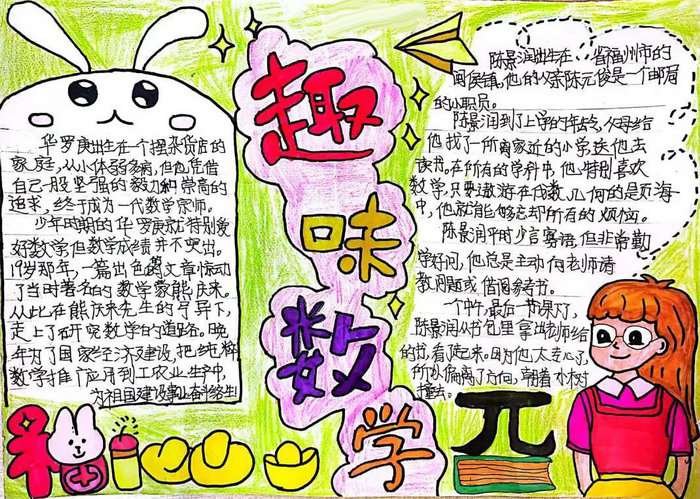 趣
味
数
学
华罗庚出生在一个摆杂货店的
家庭,从小体弱多病,但他凭借
自己一股坚强的毅力和崇高的
追求,终于成为一代数学宗师。
少年时期的华罗庚就特别爱
好数学但数学成绩并不突出。
19岁那年,一篇出色的文章惊动
了当时著名的数学家熊庆来。
从此在熊庆来先生的引导下,
走上了研究数学的道路。晚
年为了国家经济建设,把纯粹
数学推广应用到工农业生产中,
为祖国建设事业奋斗终生
陈景润出生在 省福州市的
闽侯镇。他的父亲陈元俊是一个邮局
的小职员。
陈景润到了上学的年龄,父母给
他找了所离家近的小学送他去
读书。在所有的学科中,他特别喜欢
数学,只要遨游在代数,几何的是页海
中,他就能够忘却所有的烦恼。
陈景润平时少言寡语,但非常勤
学好问,他总是主动向老师请
教问题或借阅参考书。
一个中午,最后一节课
陈景润从书包里拿出老师给
的书,看了起来。因为他太专心了,
所以偏离了方向,朝着小树
撞去。